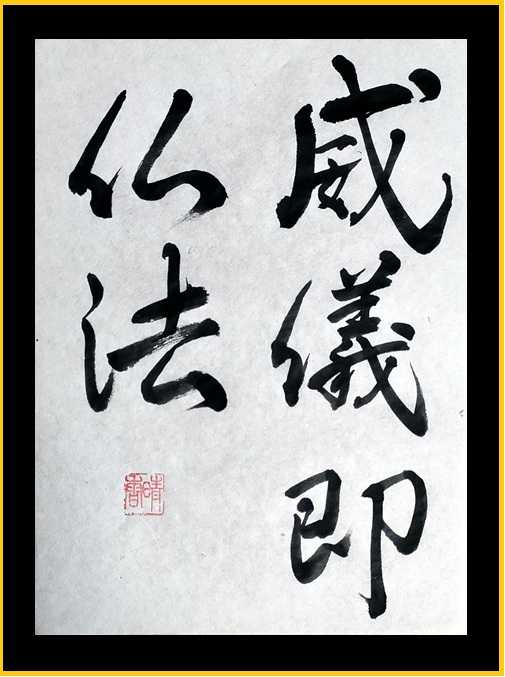 威儀即
仏法